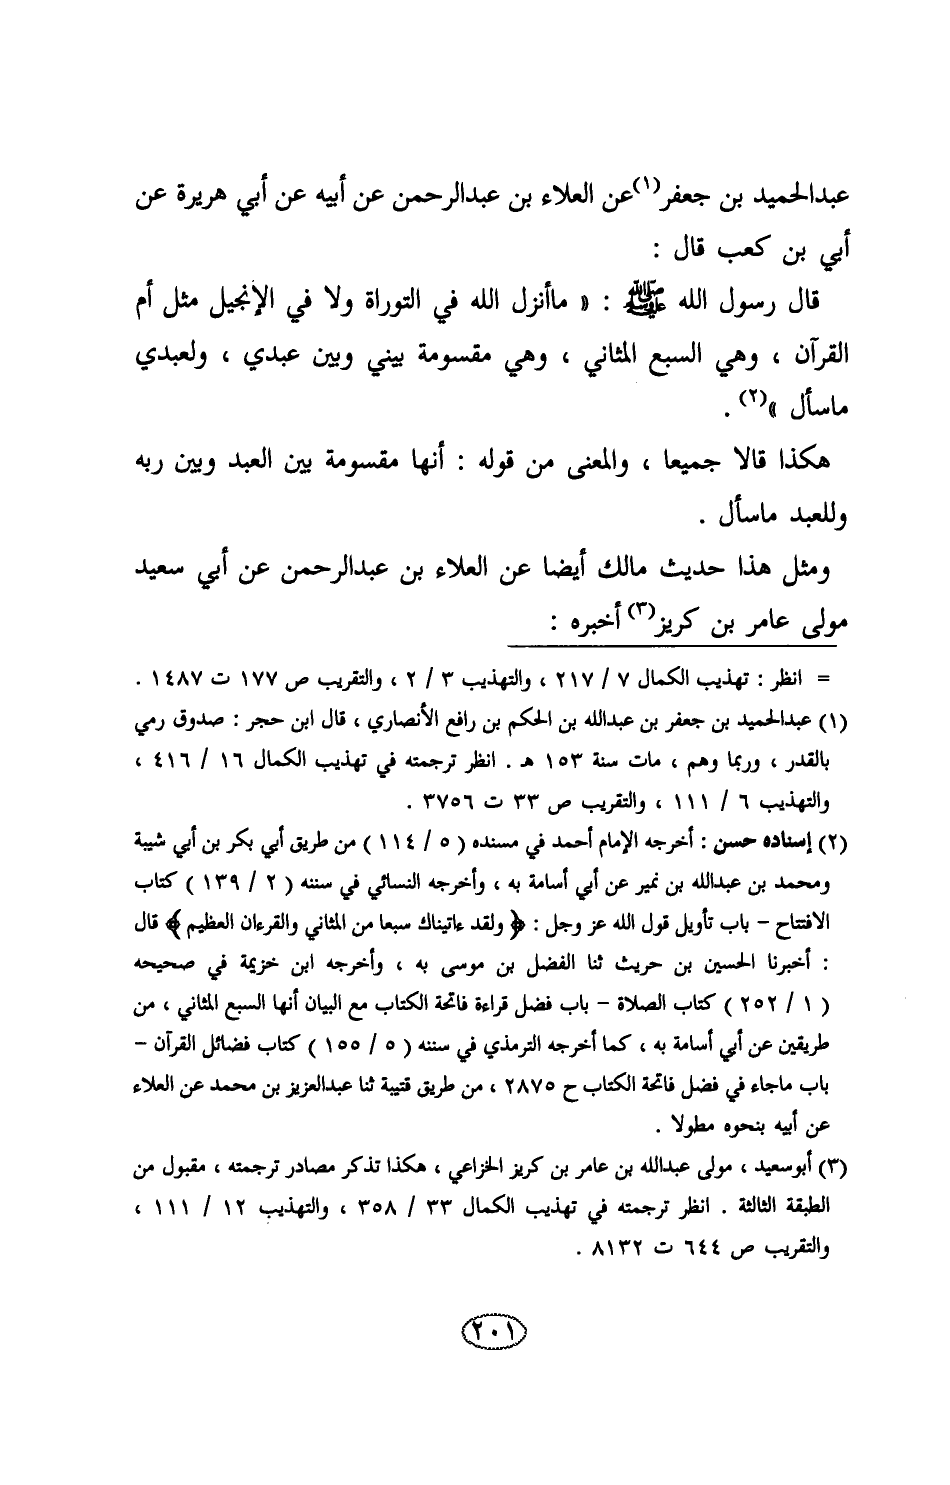 عبدالحميد بن جعفر(١)عن العلاء بن عبدالرحمن عن أبيه عن أبي هريرة عن
أبي بن كعب قال :
قال رسول الله ﷺ : « ماأنزل الله في التوراة ولا في الإنجيل مثل أم
القرآن ، وهي السبع المثاني ، وهي مقسومة بيني وبين عبدي ، ولعبدي
ماسأل »(٢) .
هكذا قالا جميعا ، والمعنى من قوله : أنها مقسومة بين العبد وبين ربه
وللعبد ماسأل .
ومثل هذا حديث مالك أيضا عن العلاء بن عبدالرحمن عن أبي سعيد
مولى عامر بن كريز(٣) أخبره :
= انظر : تهذيب الكمال ٧ / ٢١٧ ، والتهذيب ٣ / ٢ ، والتقريب ص ١٧٧ ت ١٤٨٧ .
(١) عبدالحميد بن جعفر بن عبدالله بن الحكم بن رافع الأنصاري ، قال ابن حجر : صدوق رمي
بالقدر ، وربما وهم ، مات سنة ١٥٣ هـ . انظر ترجمته في تهذيب الكمال ١٦ / ٤١٦ ،
والتهذيب ٦ / ١١١ ، والتقريب ص ٣٣ ت ٣٧٥٦ .
(٢) إسناده حسن : أخرجه الإمام أحمد في مسنده ( ٥ / ١١٤ ) من طريق أبي بكر بن أبي شيبة
ومحمد بن عبدالله بن نمير عن أبي أسامة به ، وأخرجه النسائي في سننه ( ٢ / ١٣٩ ) كتاب
الافتتاح – باب تأويل قول الله عز وجل : ﴿ ولقد ءاتيناك سبعا من المثاني والقرءان العظيم ﴾ قال
: أخبرنا الحسين بن حريث ثنا الفضل بن موسى به ، وأخرجه ابن خزيمة في صحيحه
( ١ / ٢٥٢ ) كتاب الصلاة – باب فضل قراءة فاتحة الكتاب مع البيان أنها السبع المثاني ، من
طريقين عن أبي أسامة به ، كما أخرجه الترمذي في سننه ( ٥ / ١٥٥ ) كتاب فضائل القرآن –
باب ماجاء في فضل فاتحة الكتاب ح ٢٨٧٥ ، من طريق قتيبة ثنا عبدالعزيز بن محمد عن العلاء
عن أبيه بنحوه مطولا .
(٣) أبوسعيد ، مولى عبدالله بن عامر بن كريز الخزاعي ، هكذا تذكر مصادر ترجمته ، مقبول من
الطبقة الثالثة . انظر ترجمته في تهذيب الكمال ٣٣ / ٣٥٨ ، والتهذيب ١٢ / ١١١ ،
والتقريب ص ٦٤٤ ت ٨١٣٢ .
٢٠١